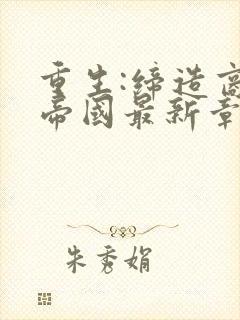 重生:缔造商
帝國最新章
朱秀娟